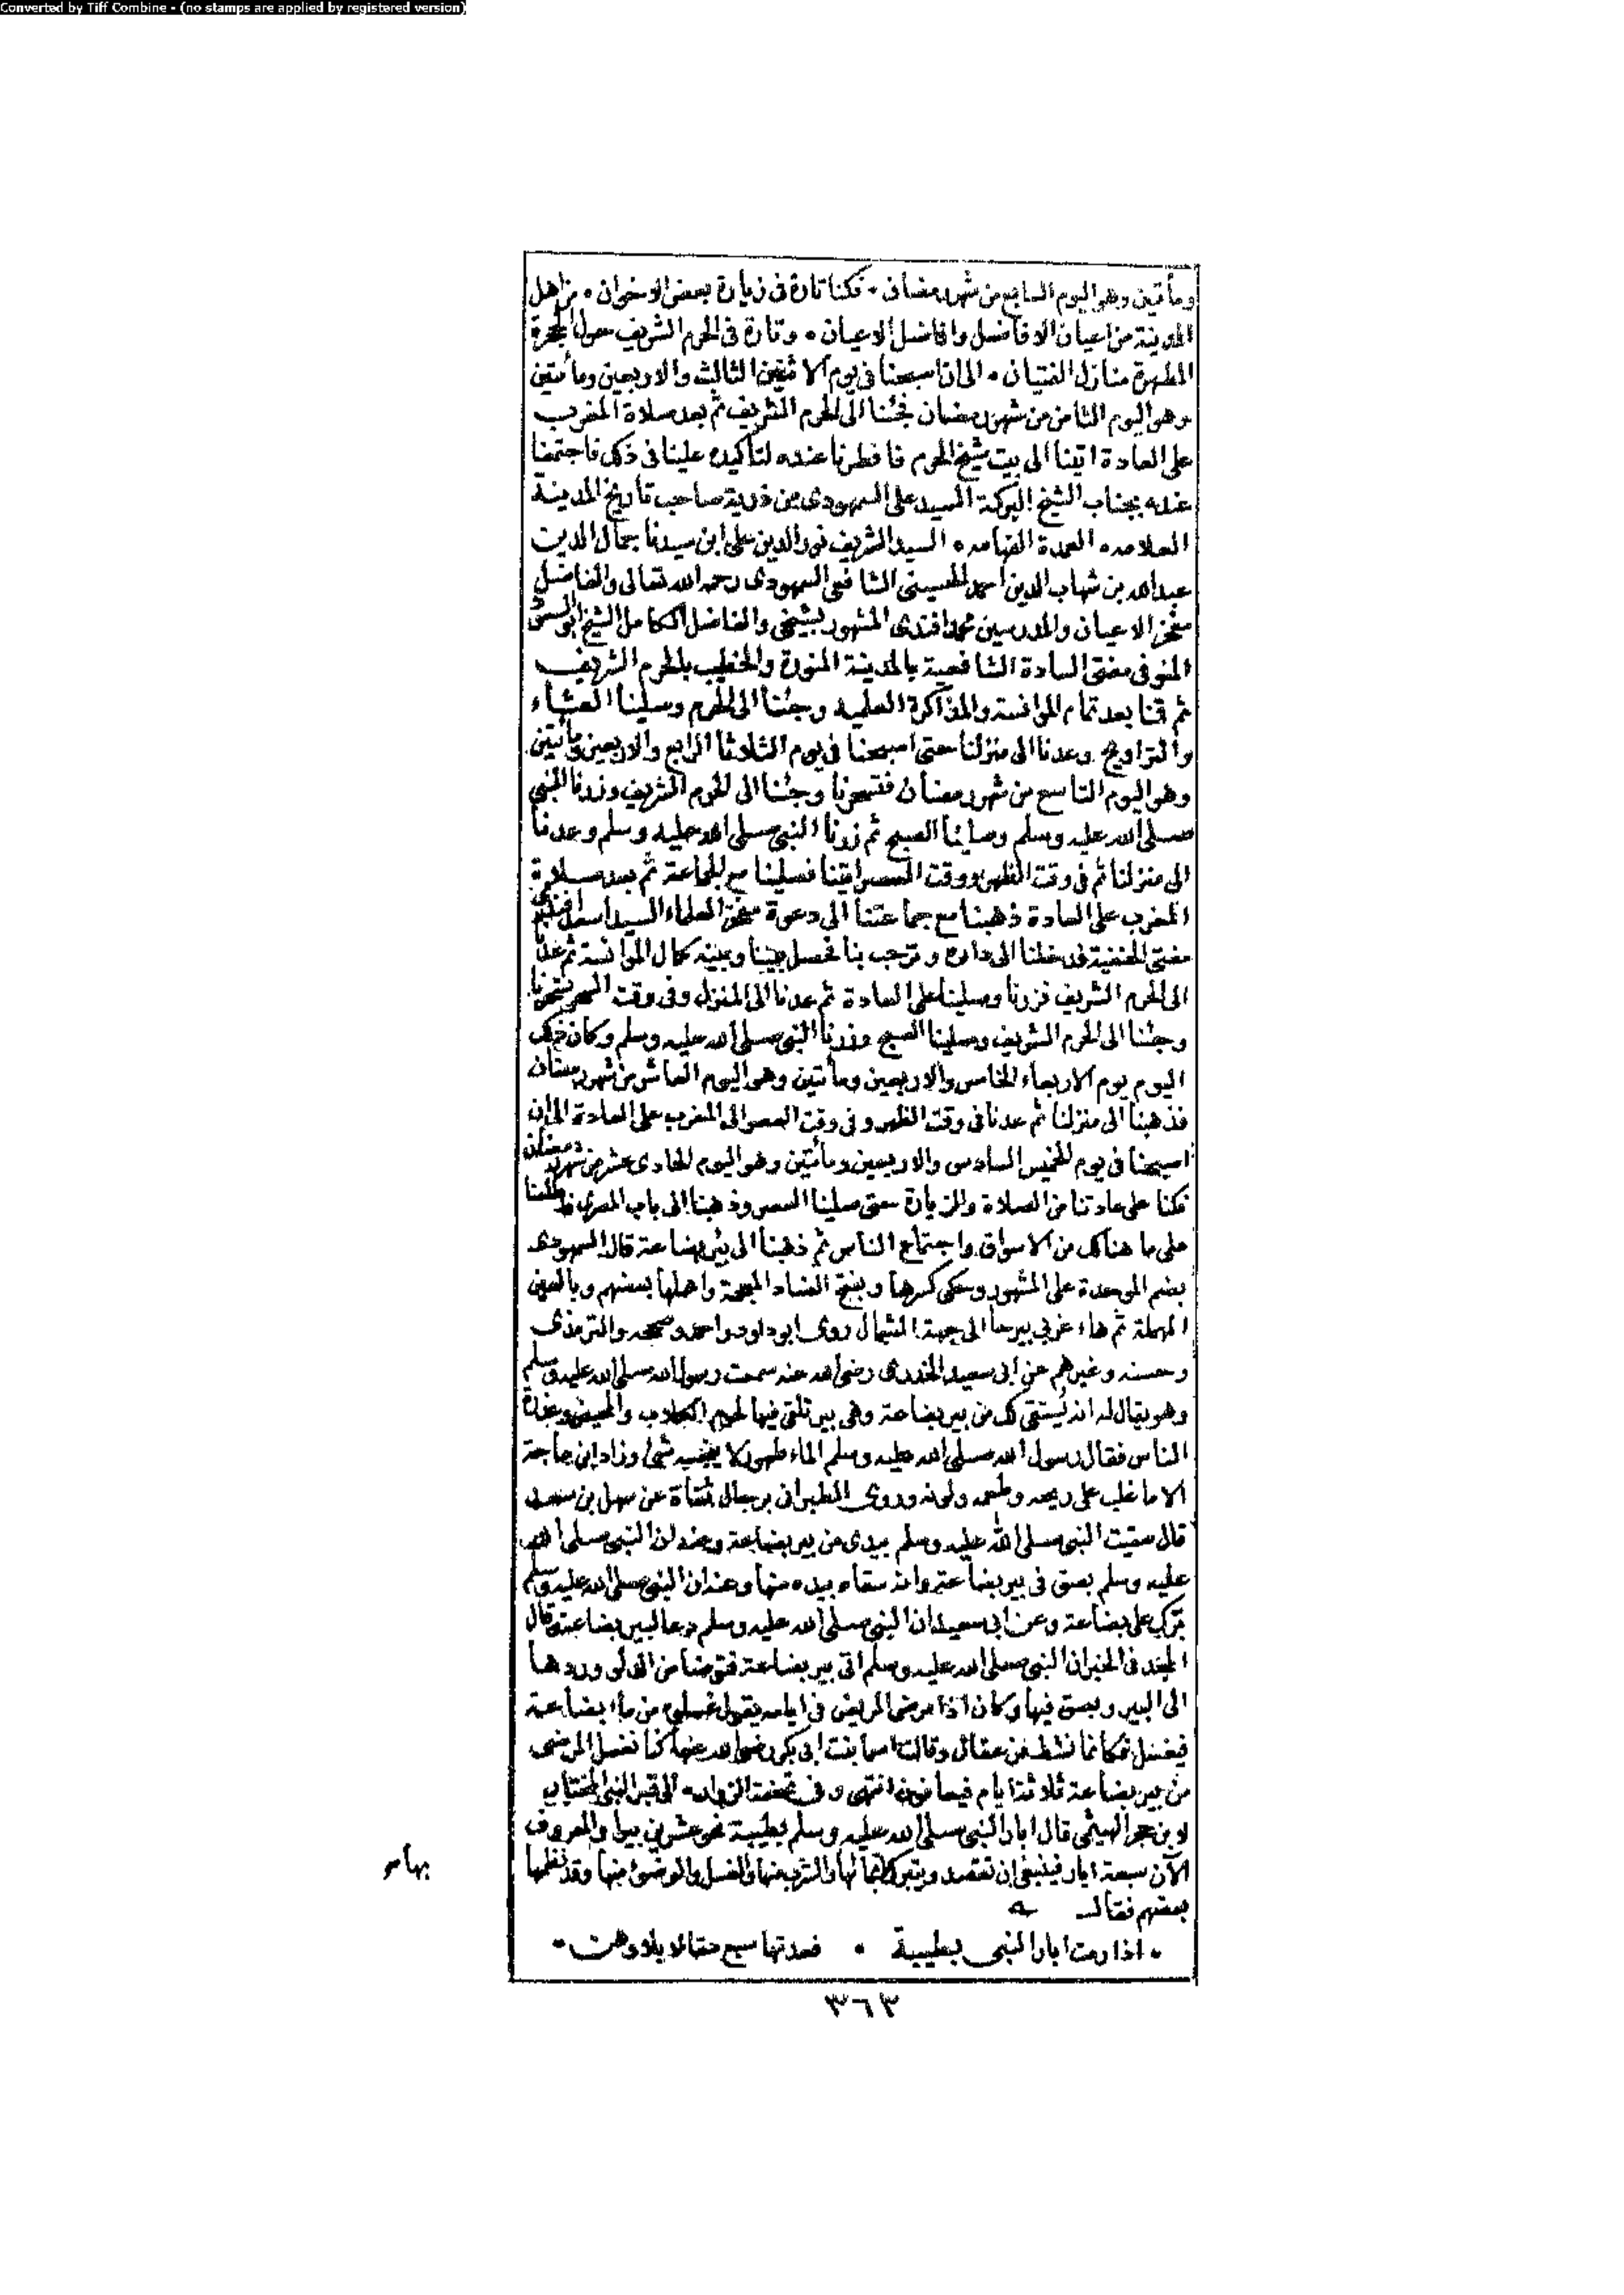 Converted by Tiff Combine - (no stamps are applied by registered version)
ومأتين وهو اليوم السابع من شهر رمضان • فكنا تارة فى زيارة بعض الاخوان • من اهل
المدينة من اعيان الافاضل وافاضل الاعيان • وتارة فى الحرم الشريف حول الحجرة
المطهرة منازل الفتيان • الى ان اصبحنا فى يوم الاثنين الثالث والاربعين ومأتين
وهو اليوم الثامن من شهر رمضان فجئنا الى الحرم الشريف ثم بعد صلاة المغرب
على العادة اتينا الى بيت شيخ الحرم فافطرنا عنده لتأكيده علينا فى ذلك فاجتمعنا
عنده بجناب الشيخ البركة السيد على السمهودى من ذرية صاحب تاريخ المدينة
العلامه • العمدة الفهامه • السيد الشريف نور الدين على ابن سيدنا جمال الدين
عبد الله بن شهاب الدين احمد الحسينى الشافعى السمهودى رحمه الله تعالى والفاضل
مفخر الاعيان والمدرسين محمد افندى المشهور بشيخى والفاضل الكامل الشيخ ابو السعود
المنوفى مفتى السادة الشافعية بالمدينة المنورة والخطيب بالحرم الشريف
ثم قمنا بعد تمام الموانسة والمذاكرة العلميه وجئنا الى الحرم وصلينا العشاء
والتراويح وعدنا الى منزلنا حتى اصبحنا فى يوم الثلاثا الرابع والاربعين ومأتين
وهو اليوم التاسع من شهر رمضان فتسحرنا وجئنا الى الحرم الشريف وزرنا النبى
صلى الله عليه وسلم وصلينا الصبح ثم زرنا النبى صلى الله عليه وسلم وعدنا
الى منزلنا ثم فى وقت الظهر ووقت العصر اتينا فصلينا مع الجماعة ثم بعد صلاة
المغرب على العادة ذهبنا مع جماعتنا الى دعوة مفخر العلماء السيد اسعد افندى
مفتى الحنفية فدخلنا الى داره وترحب بنا فحصل بيننا وبينه كمال الموانسة ثم عدنا
الى الحرم الشريف فزرنا وصلينا على العادة ثم عدنا الى المنزل وفى وقت السحر تسحرنا
وجئنا الى الحرم الشريف وصلينا الصبح وزرنا النبى صلى الله عليه وسلم وكان ذلك
اليوم يوم الاربعاء الخامس والاربعين ومأتين وهو اليوم العاشر من شهر رمضان
فذهبنا الى منزلنا ثم عدنا فى وقت الظهر وفى وقت العصر الى المغرب على العادة الى ان
اصبحنا فى يوم الخميس السادس والاربعين ومأتين وهو اليوم الحادى عشر من شهر رمضان
فكنا على عادتنا من الصلاة والزيارة حتى صلينا العصر وذهبنا الى باب المصرى فاطلعنا
على ما هنالك من الاسواق واجتماع الناس ثم ذهبنا الى بئر بضاعة قال السمهودى
بضم الموحدة على المشهور وحكى كسرها وبفتح الضاد المعجمة واهملها بعضهم وبالعين
المهملة ثم هاء غربى بيرحا الى جهة الشمال روى ابو داود واحمد وصححه والترمذى
وحسنه وغيرهم عن ابى سعيد الخدرى رضى الله عنه سمعت رسول الله صلى الله عليه وسلم
وهو يقال له انه يُستقى لك من بير بضاعة وهى بير تلقى فيها لحوم الكلاب والمحيض وعذرة
الناس فقال رسول الله صلى الله عليه وسلم الماء طهور لا ينجسه شئ وزاد ابن ماجة
الا ما غلب على ريحه وطعمه ولونه وروى الطبرانى برجال ثقاة عن سهل بن سعد
قال سقيت النبى صلى الله عليه وسلم بيدى من بير بضاعة وعنه ان النبى صلى الله
عليه وسلم بصق فى بير بضاعة وانه سقاه بيده منها وعنه ان النبى صلى الله عليه وسلم
برّك على بضاعة وعن ابى سعيد ان النبى صلى الله عليه وسلم دعا لبير بضاعة وقال
المجد فى الخبر ان النبى صلى الله عليه وسلم اتى بير بضاعة فتوضأ من الدلو وردها
الى البير وبصق فيها وكان اذا مرض المريض فى ايامه يقول غسلوه من ماء بضاعة
فيغسل فكانما نشط من عقال وقالت اسما بنت ابى بكر رضى الله عنها كنا نغسل المرضى
من بير بضاعة ثلاثة ايام فيعافون انتهى وفى تحفة الزوار • الى قبر النبى المختار
لابن حجر الهيثمى قال ابار النبى صلى الله عليه وسلم بطيبة نحو عشرين بيرا والمعروف
الآن سبعة ابار فينبغى ان تقصد ويتبرك بمائها والشرب منها والغسل والوضوء منها وقد نظمها
بعضهم فقال
• اذا رمت ابار النبى بطيبة • فعدتها سبع مقالا بلا وهن •
٣٦٣